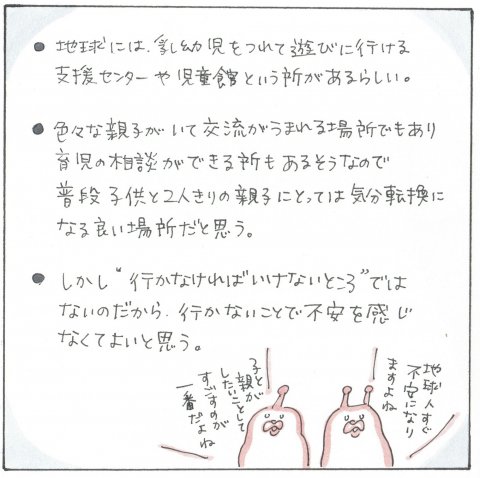 ● 地球には、乳幼児をつれて遊びに行ける
支援センターや児童館という所があるらしい。
● 色々な親子がいて交流がうまれる場所でもあり
育児の相談ができる所もあるそうなので
普段子供と2人きりの親子にとっては気分転換に
なる良い場所だと思う。
● しかし“行かなければいけないところ”では
ないのだから、行かないことで不安を感じ
なくてよいと思う。
地球人すぐ
不安になり
ますよね
子と親が
したいことして
すごすのが
一番だよね